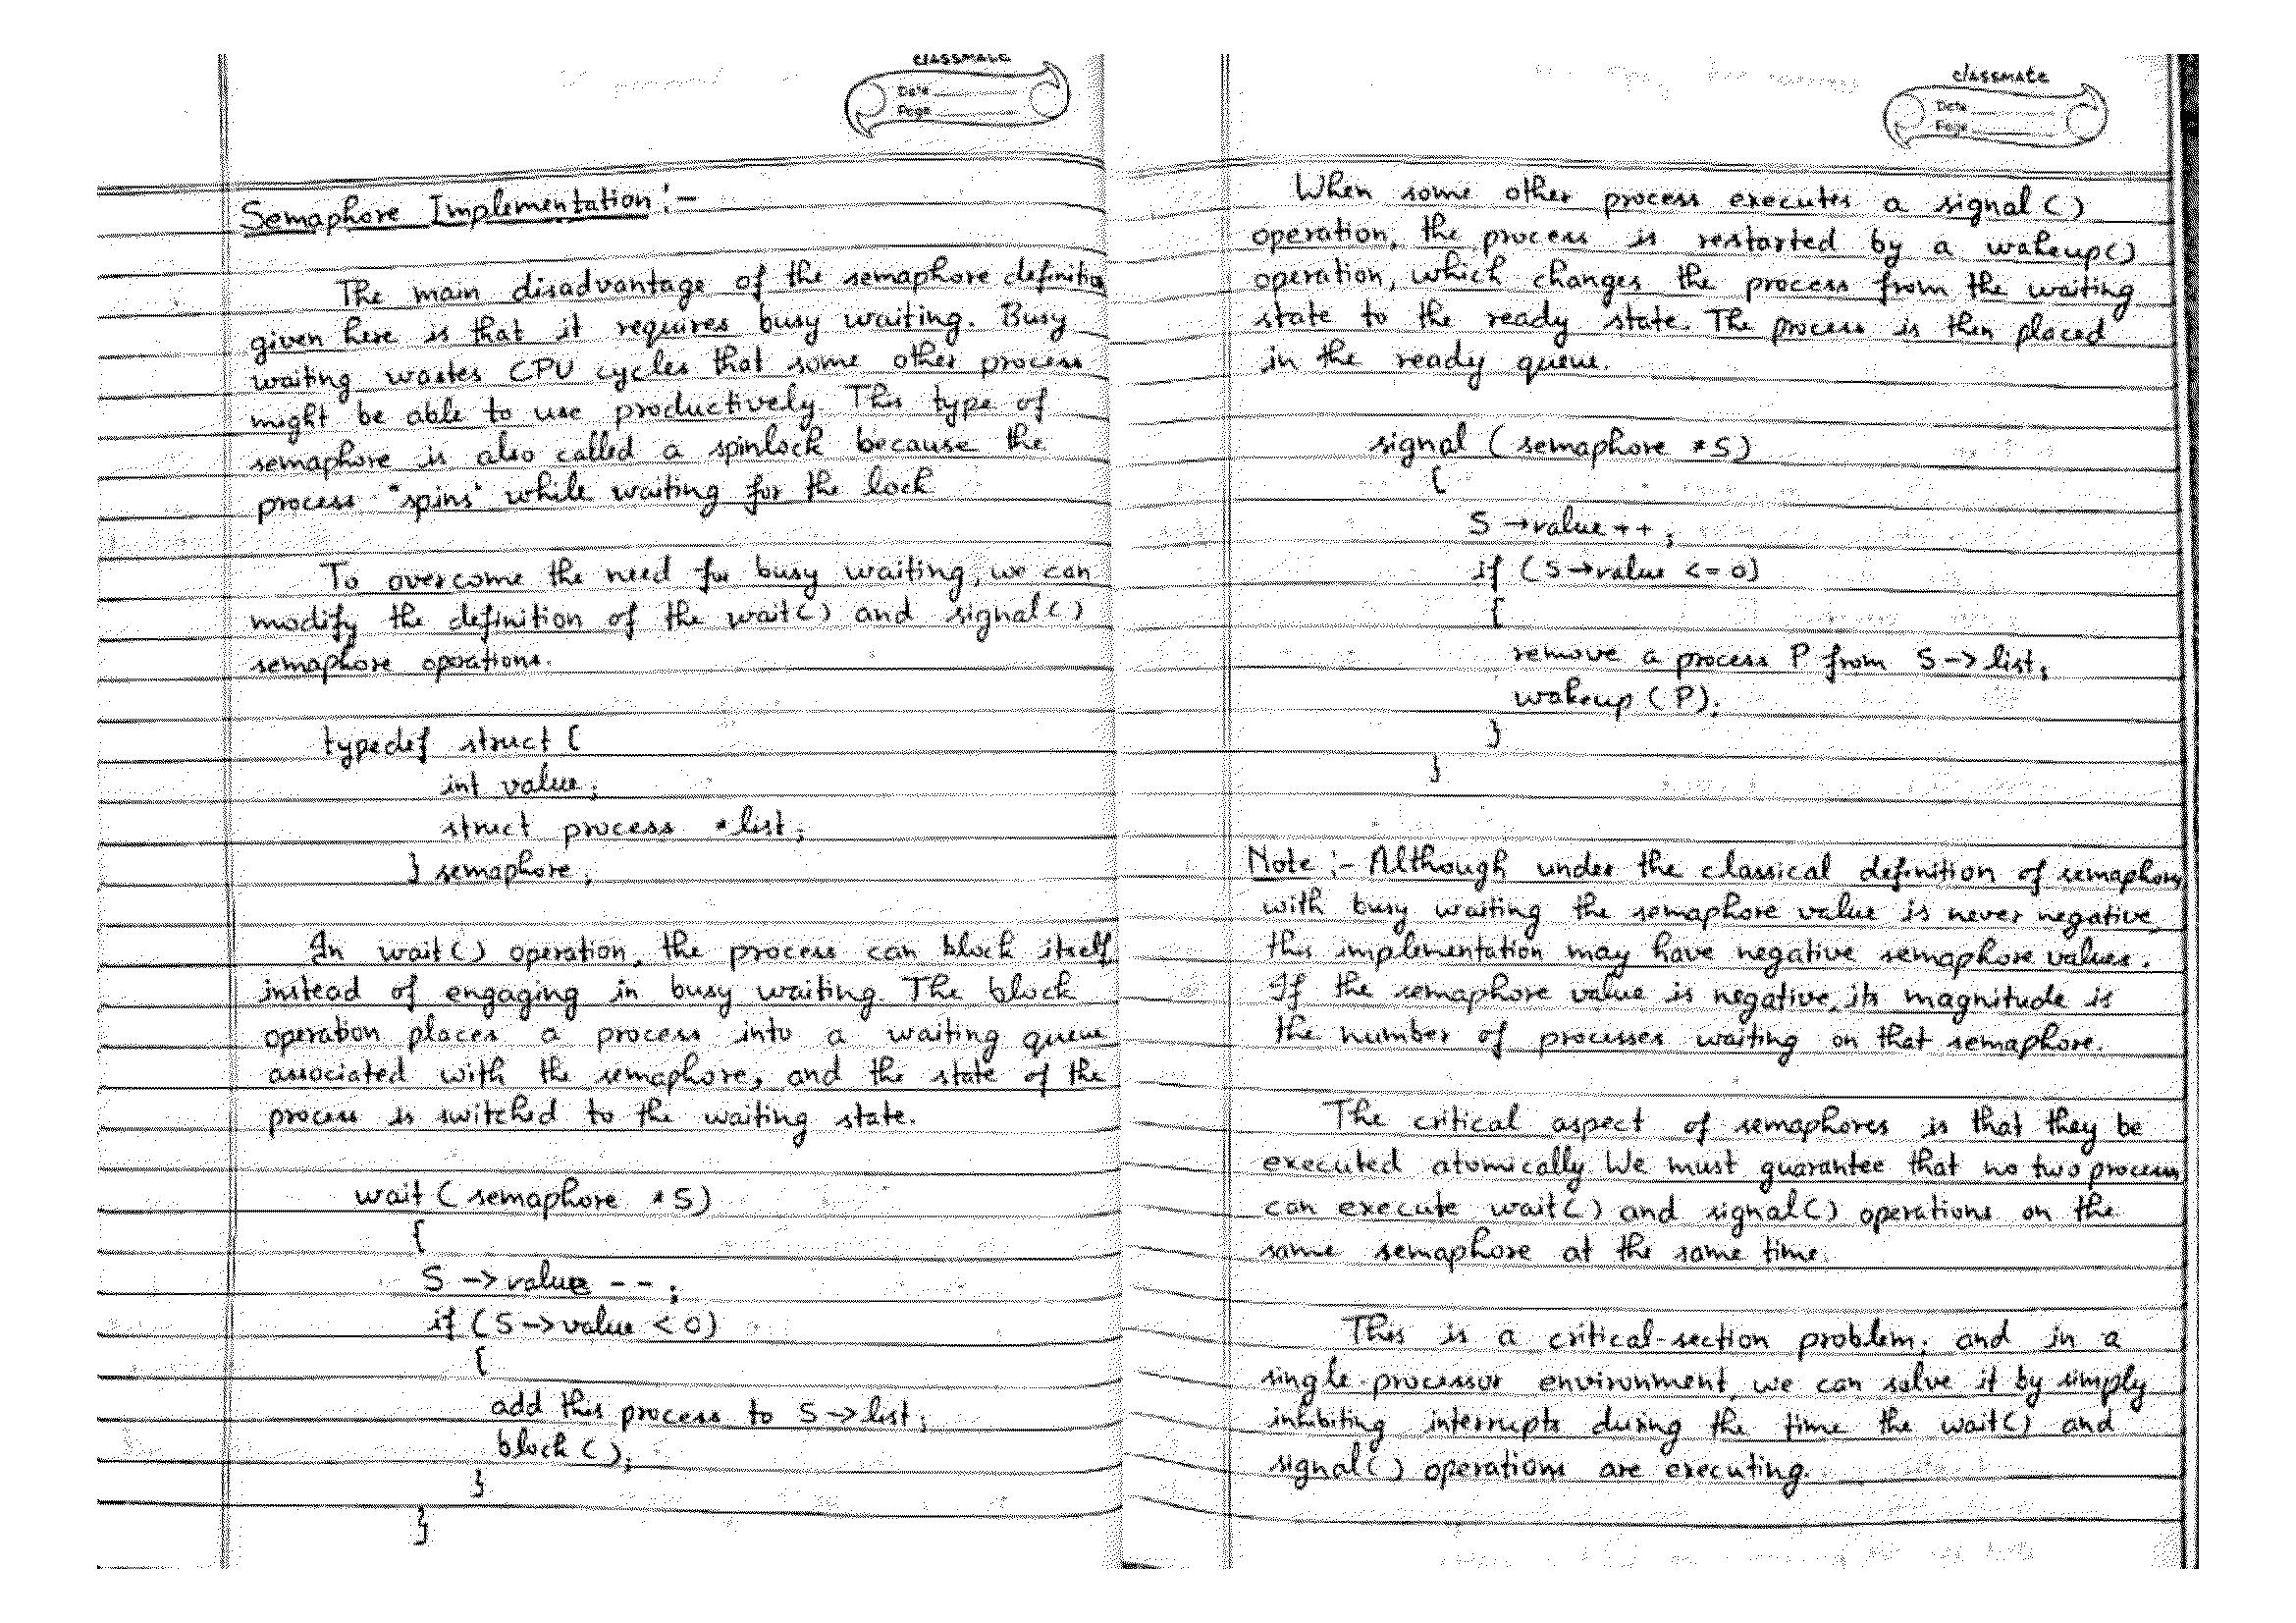 classmate
Date
Page
Semaphore Implementation :-
The main disadvantage of the semaphore definitio
given here is that it requires busy waiting. Busy
waiting wastes CPU cycles that some other process
might be able to use productively. This type of
semaphore is also called a spinlock because the
process "spins" while waiting for the lock
To overcome the need for busy waiting, we can
modify the definition of the wait() and signal()
semaphore operations.
typedef struct {
int value;
struct process *list;
} semaphore;
In wait() operation, the process can block itself
instead of engaging in busy waiting. The block
operation places a process into a waiting queue
associated with the semaphore, and the state of the
process is switched to the waiting state.
wait (semaphore *S)
{
S ->value --;
if (S->value < 0)
{
add this process to S->list;
block();
}
}
classmate
Date
Page
When some other process executes a signal()
operation, the process is restarted by a wakeup()
operation, which changes the process from the waiting
state to the ready state. The process is then placed
in the ready queue.
signal (semaphore *S)
{
S ->value ++;
if (S->value <= 0)
{
remove a process P from S->list;
wakeup (P);
}
}
Note :- Although under the classical definition of semaphore
with busy waiting the semaphore value is never negative,
this implementation may have negative semaphore values.
If the semaphore value is negative, its magnitude is
the number of processes waiting on that semaphore.
The critical aspect of semaphores is that they be
executed atomically. We must guarantee that no two process
can execute wait() and signal() operations on the
same semaphore at the same time.
This is a critical-section problem; and in a
single-processor environment, we can solve it by simply
inhibiting interrupts during the time the wait() and
signal() operations are executing.